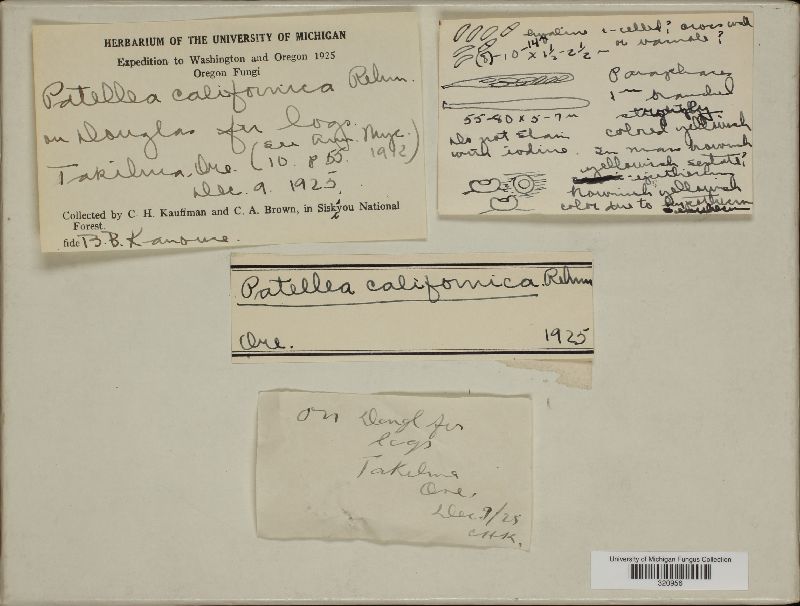 HERBARIUM OF THE UNIVERSITY OF MICHIGAN
Expedition to Washington and Oregon 1925
Oregon Fungi
Patellea californica Rehm.
on Douglas fir logs.
Takilma, Ore. (see Ann. Myc. 10. p 55. 1912)
Dec. 9. 1925.
Collected by C. H. Kauffman and C. A. Brown, in Siskiyou National
Forest.
fide B. B. Kanouse.
hyaline 1-celled; cross wall
or vacuole?
(8)-10-14 x 1½-2½
Paraphyses
branched
55-80 x 5-7
strongly
colored yellowish
Do not stain
with iodine.
In mass brownish
yellowish septate;
epithecium
brownish yellowish
color due to
Patellea californica. Rehm
Ore.
1925
on Dougl fir
logs
Takilma
Ore.
Dec. 9/25
CHK.
University of Michigan Fungus Collection
320956